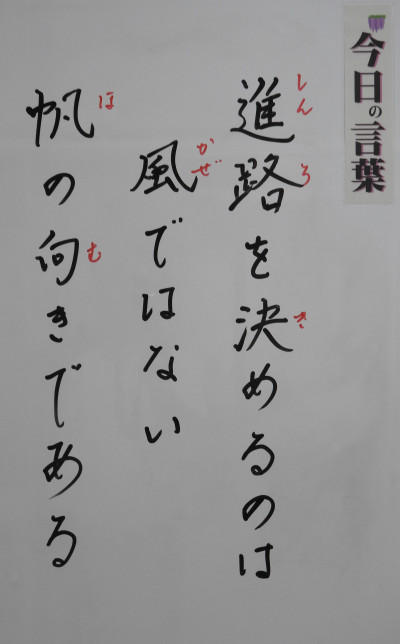 今日の言葉
進路を決めるのは
しんろ き
風ではない
かぜ
帆の向きである
ほ む